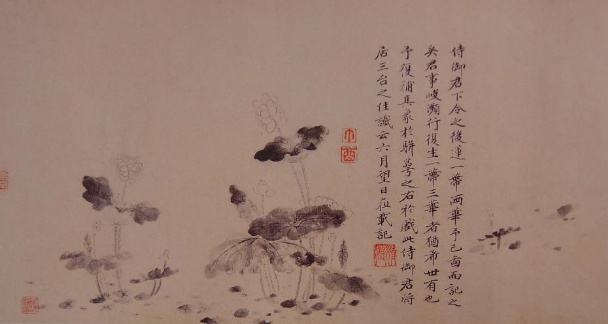 侍御君下令之後蓮一蒂兩華予已畵而記之
矣君事峻瀕行復生一蒂三華者猶希世有也
予復補其象於騈萼之右於戲此侍御君將
居三台之佳讖云六月望日在載記